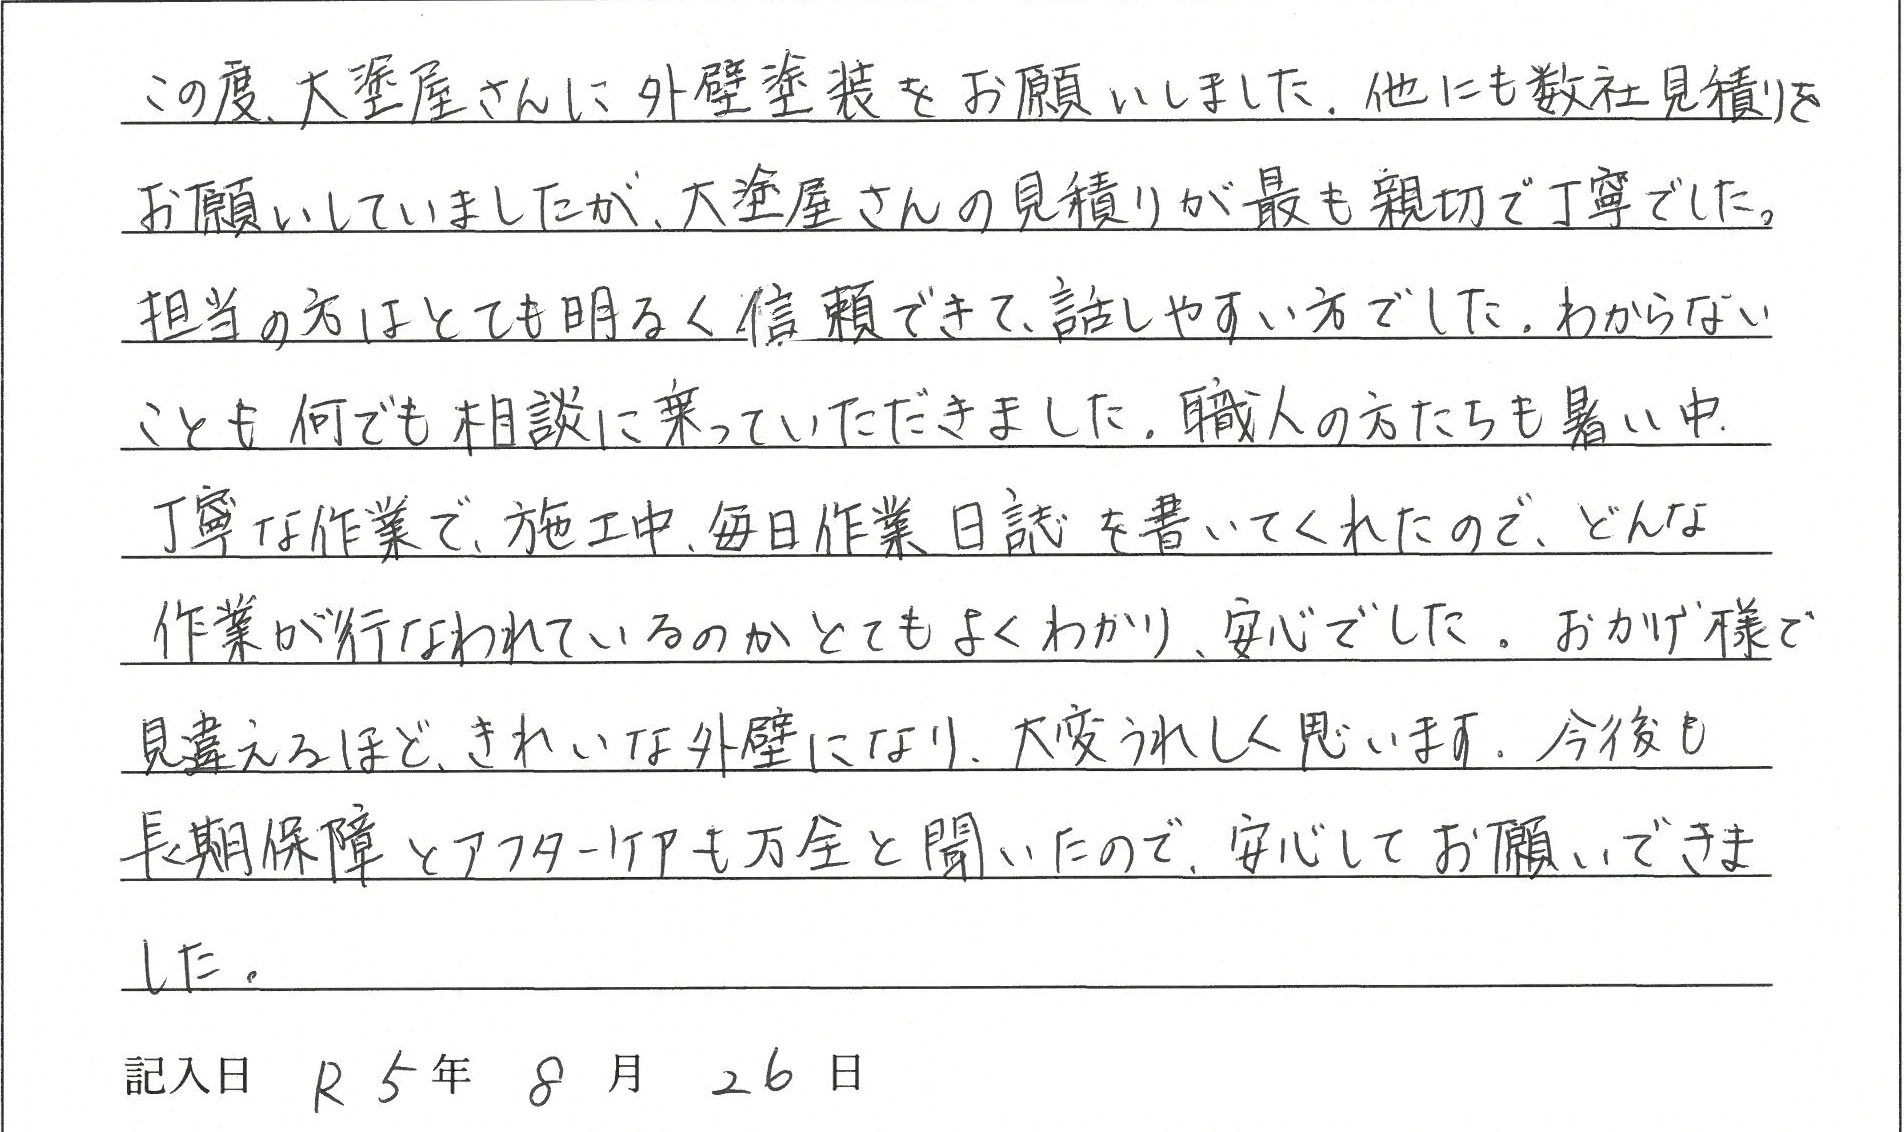 この度、大塗屋さんに外壁塗装をお願いしました。他にも数社見積りを
お願いしていましたが、大塗屋さんの見積りが最も親切で丁寧でした。
担当の方はとても明るく信頼できて、話しやすい方でした。わからない
ことも何でも相談に乗っていただきました。職人の方たちも暑い中、
丁寧な作業で、施工中、毎日作業日誌を書いてくれたので、どんな
作業が行なわれているのかとてもよくわかり、安心でした。おかげ様で
見違えるほど、きれいな外壁になり、大変うれしく思います。今後も
長期保障とアフターケアも万全と聞いたので、安心してお願いできま
した。
記入日 R5年 8月 26日